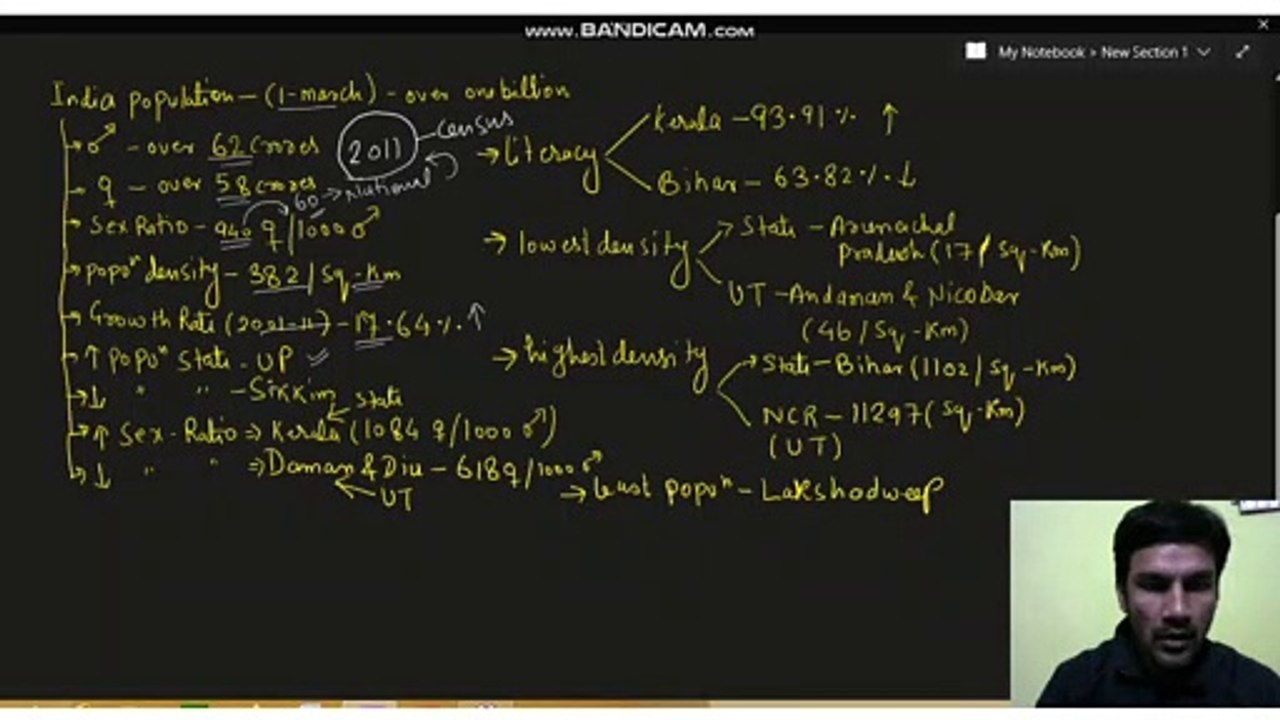 www.BANDICAM.com
My Notebook > New Section 1
India population - (1-march) - over one billion
♂ - over 62 crores
2011 - census
♀ - over 58 crores
60 → National
Sex Ratio - 940 ♀/1000 ♂
popoⁿ density - 382/sq-km
Growth Rate (2001-11) - 17.64%. ↑
↑ popoⁿ state - UP ✓
↓ " " - Sikkim
state
↑ Sex-Ratio ⇒ Kerala (1084 ♀/1000 ♂)
↓ " " ⇒ Daman & Diu - 618♀/1000 ♂
UT
→ literacy
Kerala - 93.91%. ↑
Bihar - 63.82%. ↓
→ lowest density
State - Arunachal
Pradesh (17/sq-km)
UT - Andaman & Nicobar
(46/sq-km)
→ highest density
State - Bihar (1102/sq-km)
NCR - 11297 (sq-km)
(UT)
→ least popoⁿ - Lakshadweep